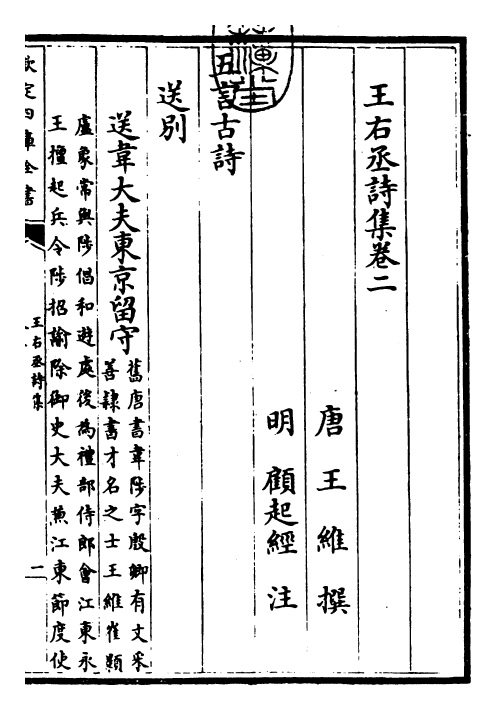 王右丞詩集卷二
唐 王維 撰
明 顧起經 注
五言古詩
送别
送韋大夫東京留守
舊唐書韋陟字殷卿有文采
善隸書才名之士王維崔顥
盧象常與陟倡和遊處後為禮部侍郎會江東永
王擅起兵令陟招諭除御史大夫兼江東節度使
欽定四庫全書
王右丞詩集
二